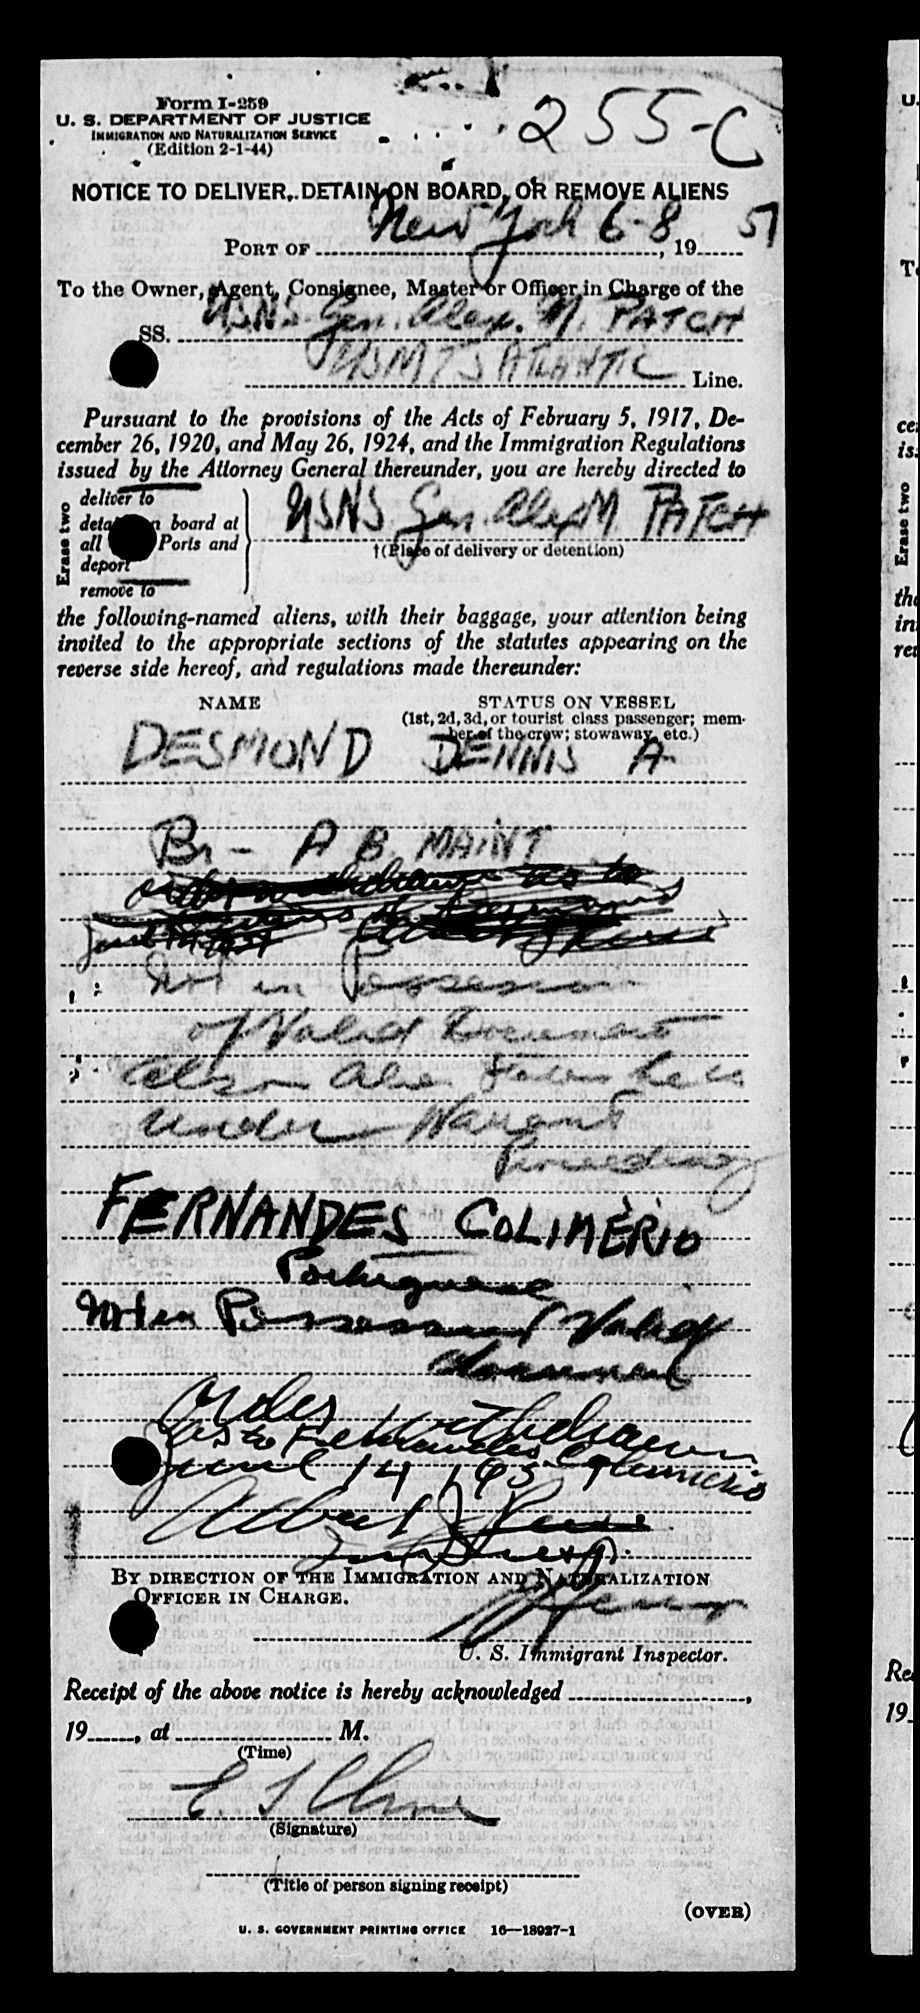 Form I-259
U. S. DEPARTMENT OF JUSTICE
IMMIGRATION AND NATURALIZATION SERVICE
(Edition 2-1-44)
255-C
NOTICE TO DELIVER, DETAIN ON BOARD, OR REMOVE ALIENS
PORT OF New York 6-8, 19 51
To the Owner, Agent, Consignee, Master or Officer in Charge of the
SS. USNS Gen. Alex. M. PATCH
USMTS ATLANTIC Line.
Pursuant to the provisions of the Acts of February 5, 1917, De-
cember 26, 1920, and May 26, 1924, and the Immigration Regulations
issued by the Attorney General thereunder, you are hereby directed to
Erase two
deliver to
detain on board at
all Ports and
deport
remove to
USNS Gen. Alex M. PATCH
†(Place of delivery or detention)
the following-named aliens, with their baggage, your attention being
invited to the appropriate sections of the statutes appearing on the
reverse side hereof, and regulations made thereunder:
NAME
STATUS ON VESSEL
(1st, 2d, 3d, or tourist class passenger; mem-
ber of the crew; stowaway, etc.)
DESMOND DENNIS A
Br - A B MAINT
order withdrawn as to
Not in Possession
of Valid Document
under Warrant
Proceeding
FERNANDES COLIMÉRIO
Portuguese
Not in Possession of Valid
document
Order Withdrawn
as to Fernandes Colimerio
June 14, 1951
Albert J
BY DIRECTION OF THE IMMIGRATION AND NATURALIZATION
OFFICER IN CHARGE.
U. S. Immigrant Inspector.
Receipt of the above notice is hereby acknowledged ,
19 , at M.
(Time)
(Signature)
(Title of person signing receipt)
(OVER)
U. S. GOVERNMENT PRINTING OFFICE 16—18027-1